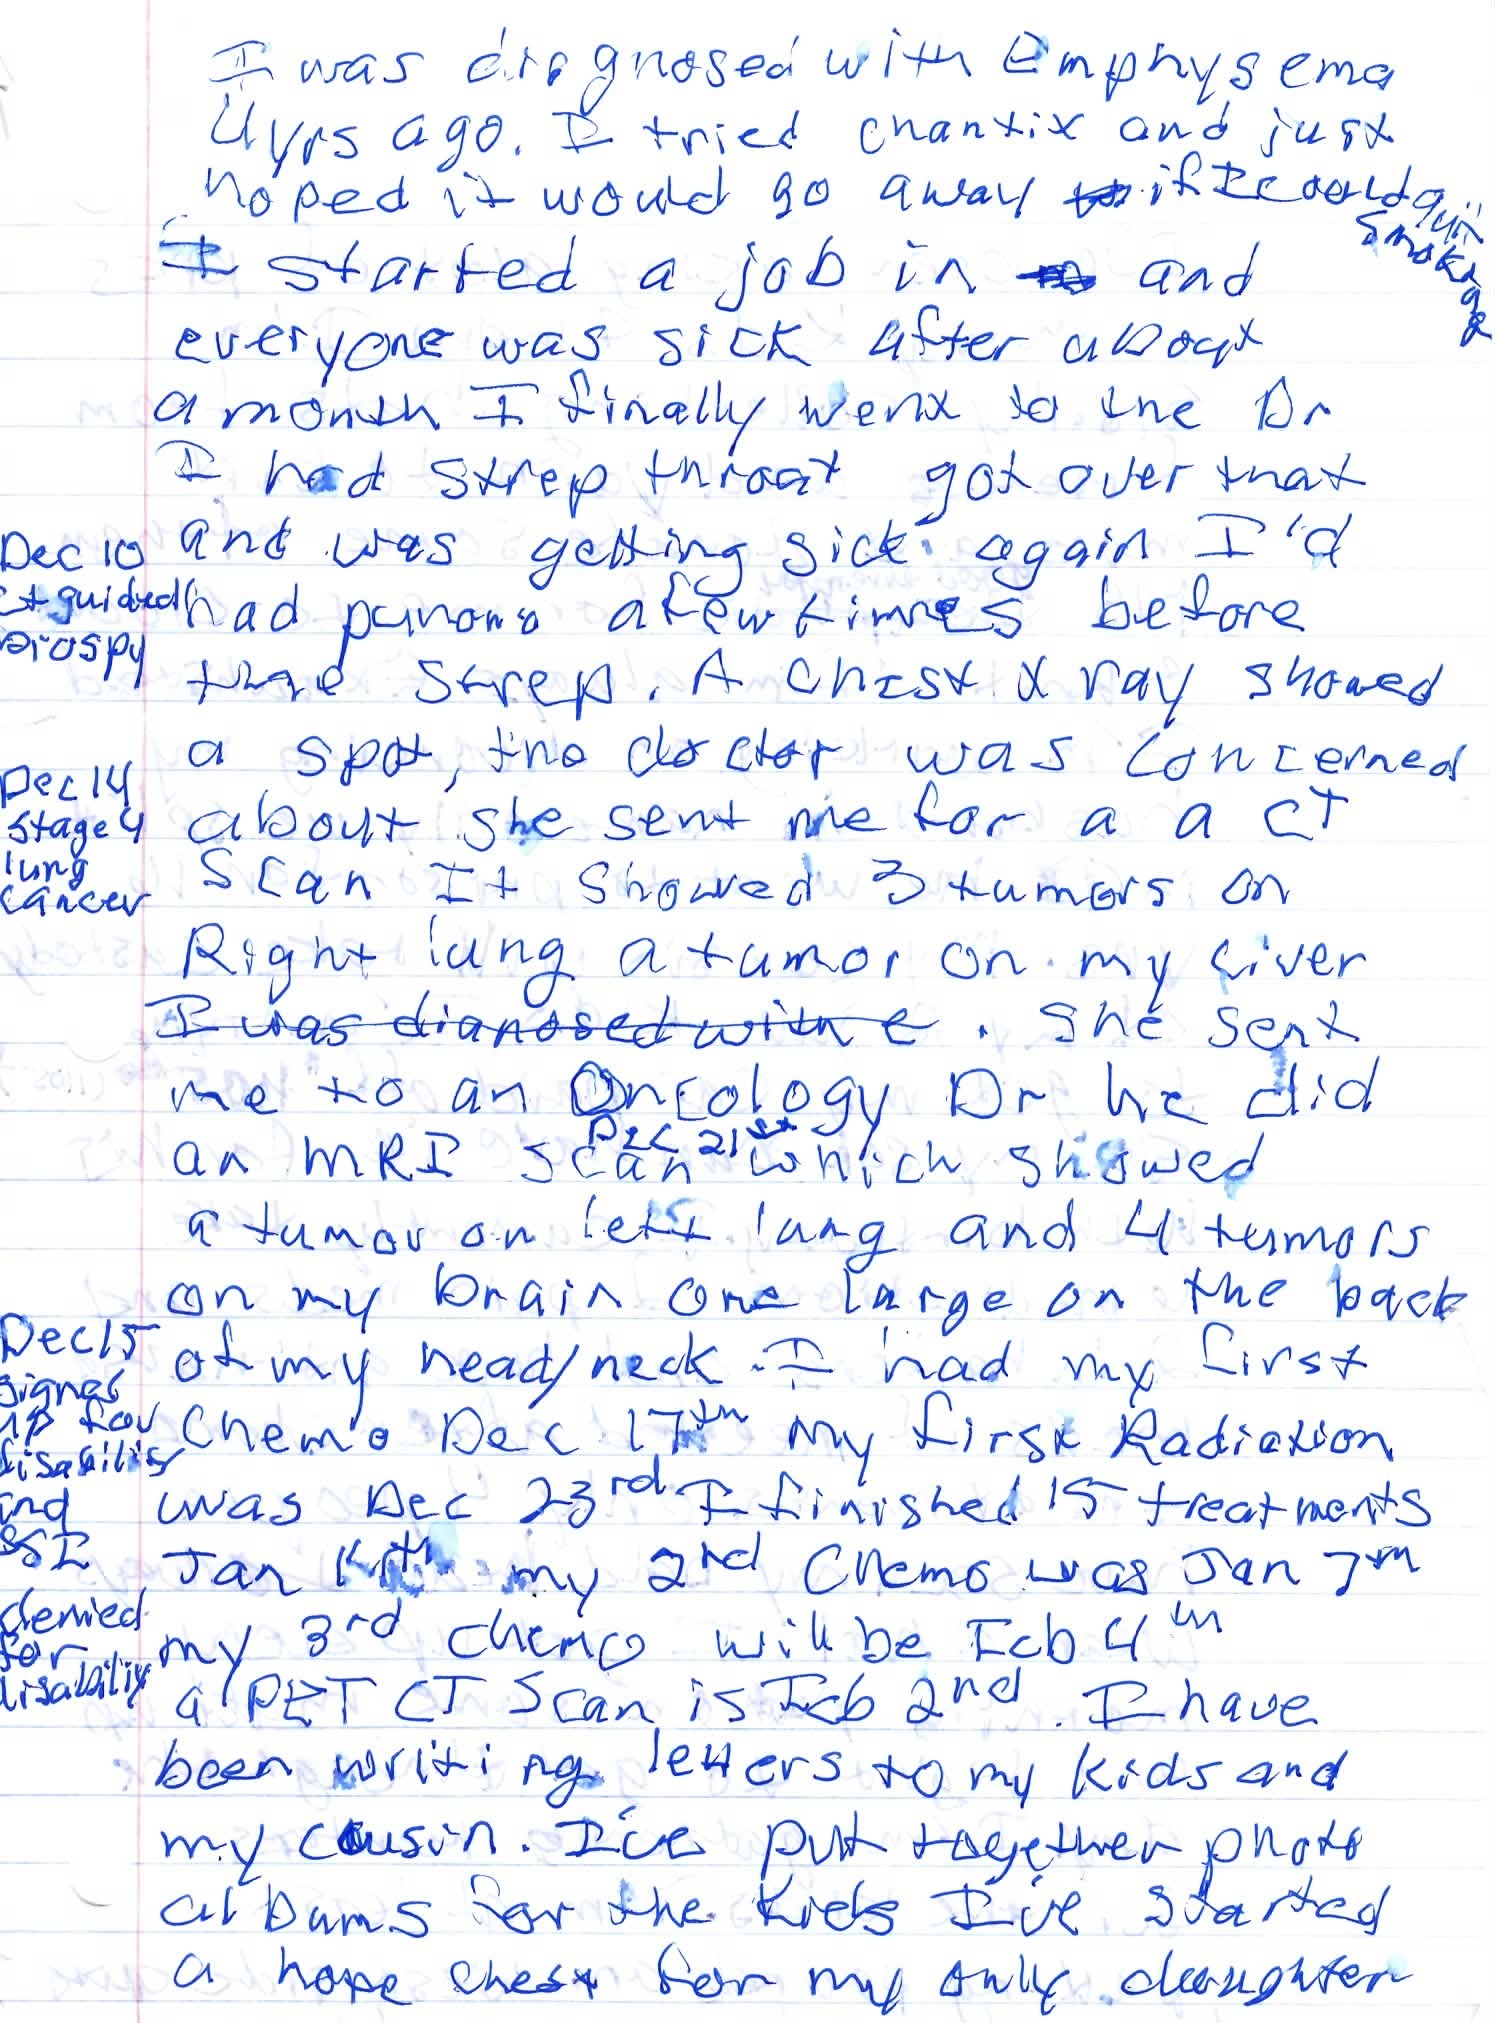 I was diagnosed with Emphysema
4 yrs ago. I tried chantix and just
hoped it would go away if I could quit
smoking
I started a job in and
everyone was sick after about
a month I finally went to the Dr
I had strep throat got over that
and was getting sick again I'd
had a few times before
the strep. A chest x ray showed
a spot, the doctor was concerned
about she sent me for a a CT
Scan It showed 3 tumors on
Right lung a tumor on my liver
I was dianosed with e . She sent
me to an Oncology Dr he did
Dec 21st
an MRI scan which showed
a tumor on left lung and 4 tumors
on my brain one large on the back
of my head/neck. I had my first
Chemo Dec 17th my first Radiation
was Dec 23rd I finished 15 treatments
Jan my 2nd Chemo was Jan 7th
my 3rd chemo will be Feb 4th
a PET CT Scan is Feb 2nd. I have
been writing letters to my kids and
my cousin. I've put together photo
albums for the kids I've started
a hope chest for my only daughter
Dec 10
ct guided
biospy
Dec 14
stage 4
lung
cancer
Dec 15
signed
up for
disability
and
SSI
denied
for
disability